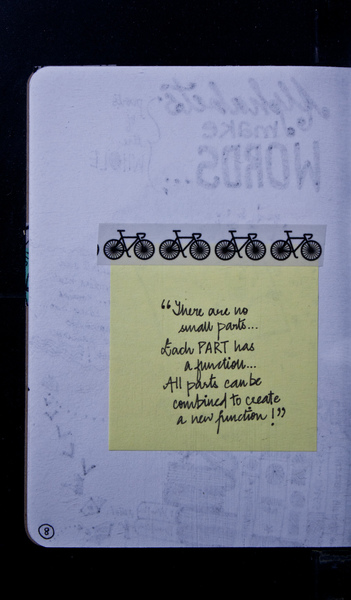 Alphabets
make
WORDS...
“There are no
small parts...
Each PART has
a function...
All parts can be
combined to create
a new function!”
8